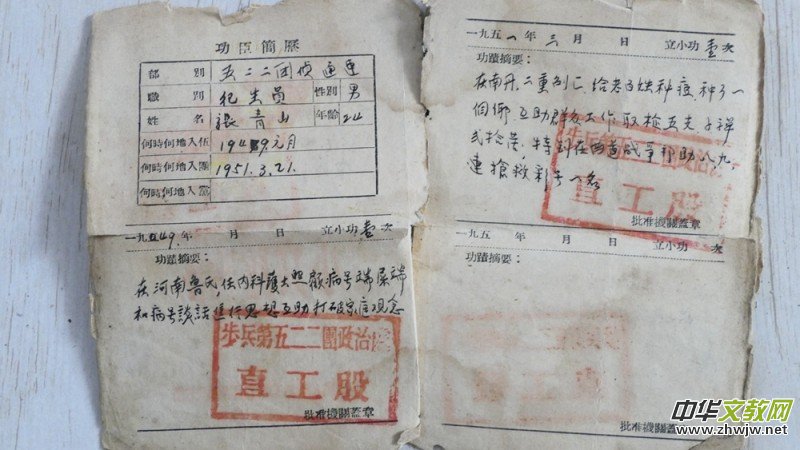 功臣簡歷
部別 五二二团侦通连
職別 纪生員 性別 男
姓名 張青山 年齡 24
何時何地入伍 1949元月
何時何地入團 1951.3.21.
何時何地入黨
一九49年 月 日 立小功壹次
功蹟摘要:
在河南鲁氏,任内科護士照顾病号端屎端
和病号談話進行思想互助打破家庭观念
步兵第五二二團政治處
直工股
批准機關蓋章
一九五一年三月 日 立小功壹次
功蹟摘要:
在南丹.二重
個鄉.互助群众工作取枪五支子弹
戰爭帮助八九
連搶救彩号一名
直工股
批准機關蓋章
一九五 年 月 日 立小功 次
功蹟摘要:
批准機關蓋章
中华文教网
www.zhwjw.net